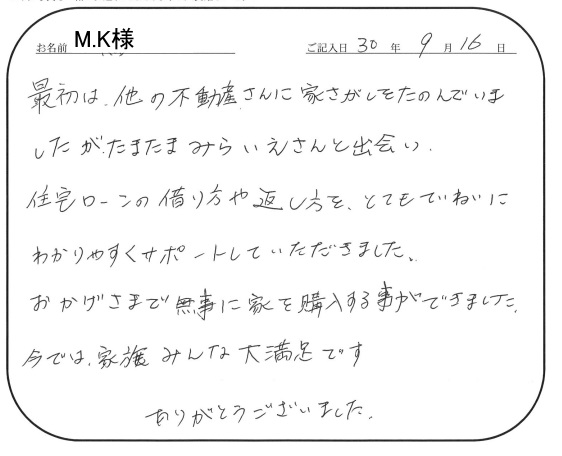 お名前 M.K様 ご記入日 30 年 9 月 16 日
最初は、他の不動産さんに家さがしをたのんでいま
したが、たまたまみらいえさんと出会い、
住宅ローンの借り方や返し方を、とてもていねいに
わかりやすくサポートしていただきました。
おかげさまで無事に家を購入する事ができました。
今では、家族みんな大満足です
ありがとうございました。